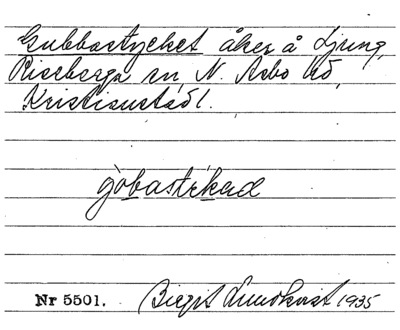 Gubbastycket åker å Ljung,
Riseberga sn, N. Åsbo hd,
Kristianstads l.
gòbastikad
Nr 5501. Birgit Lundkvist 1935